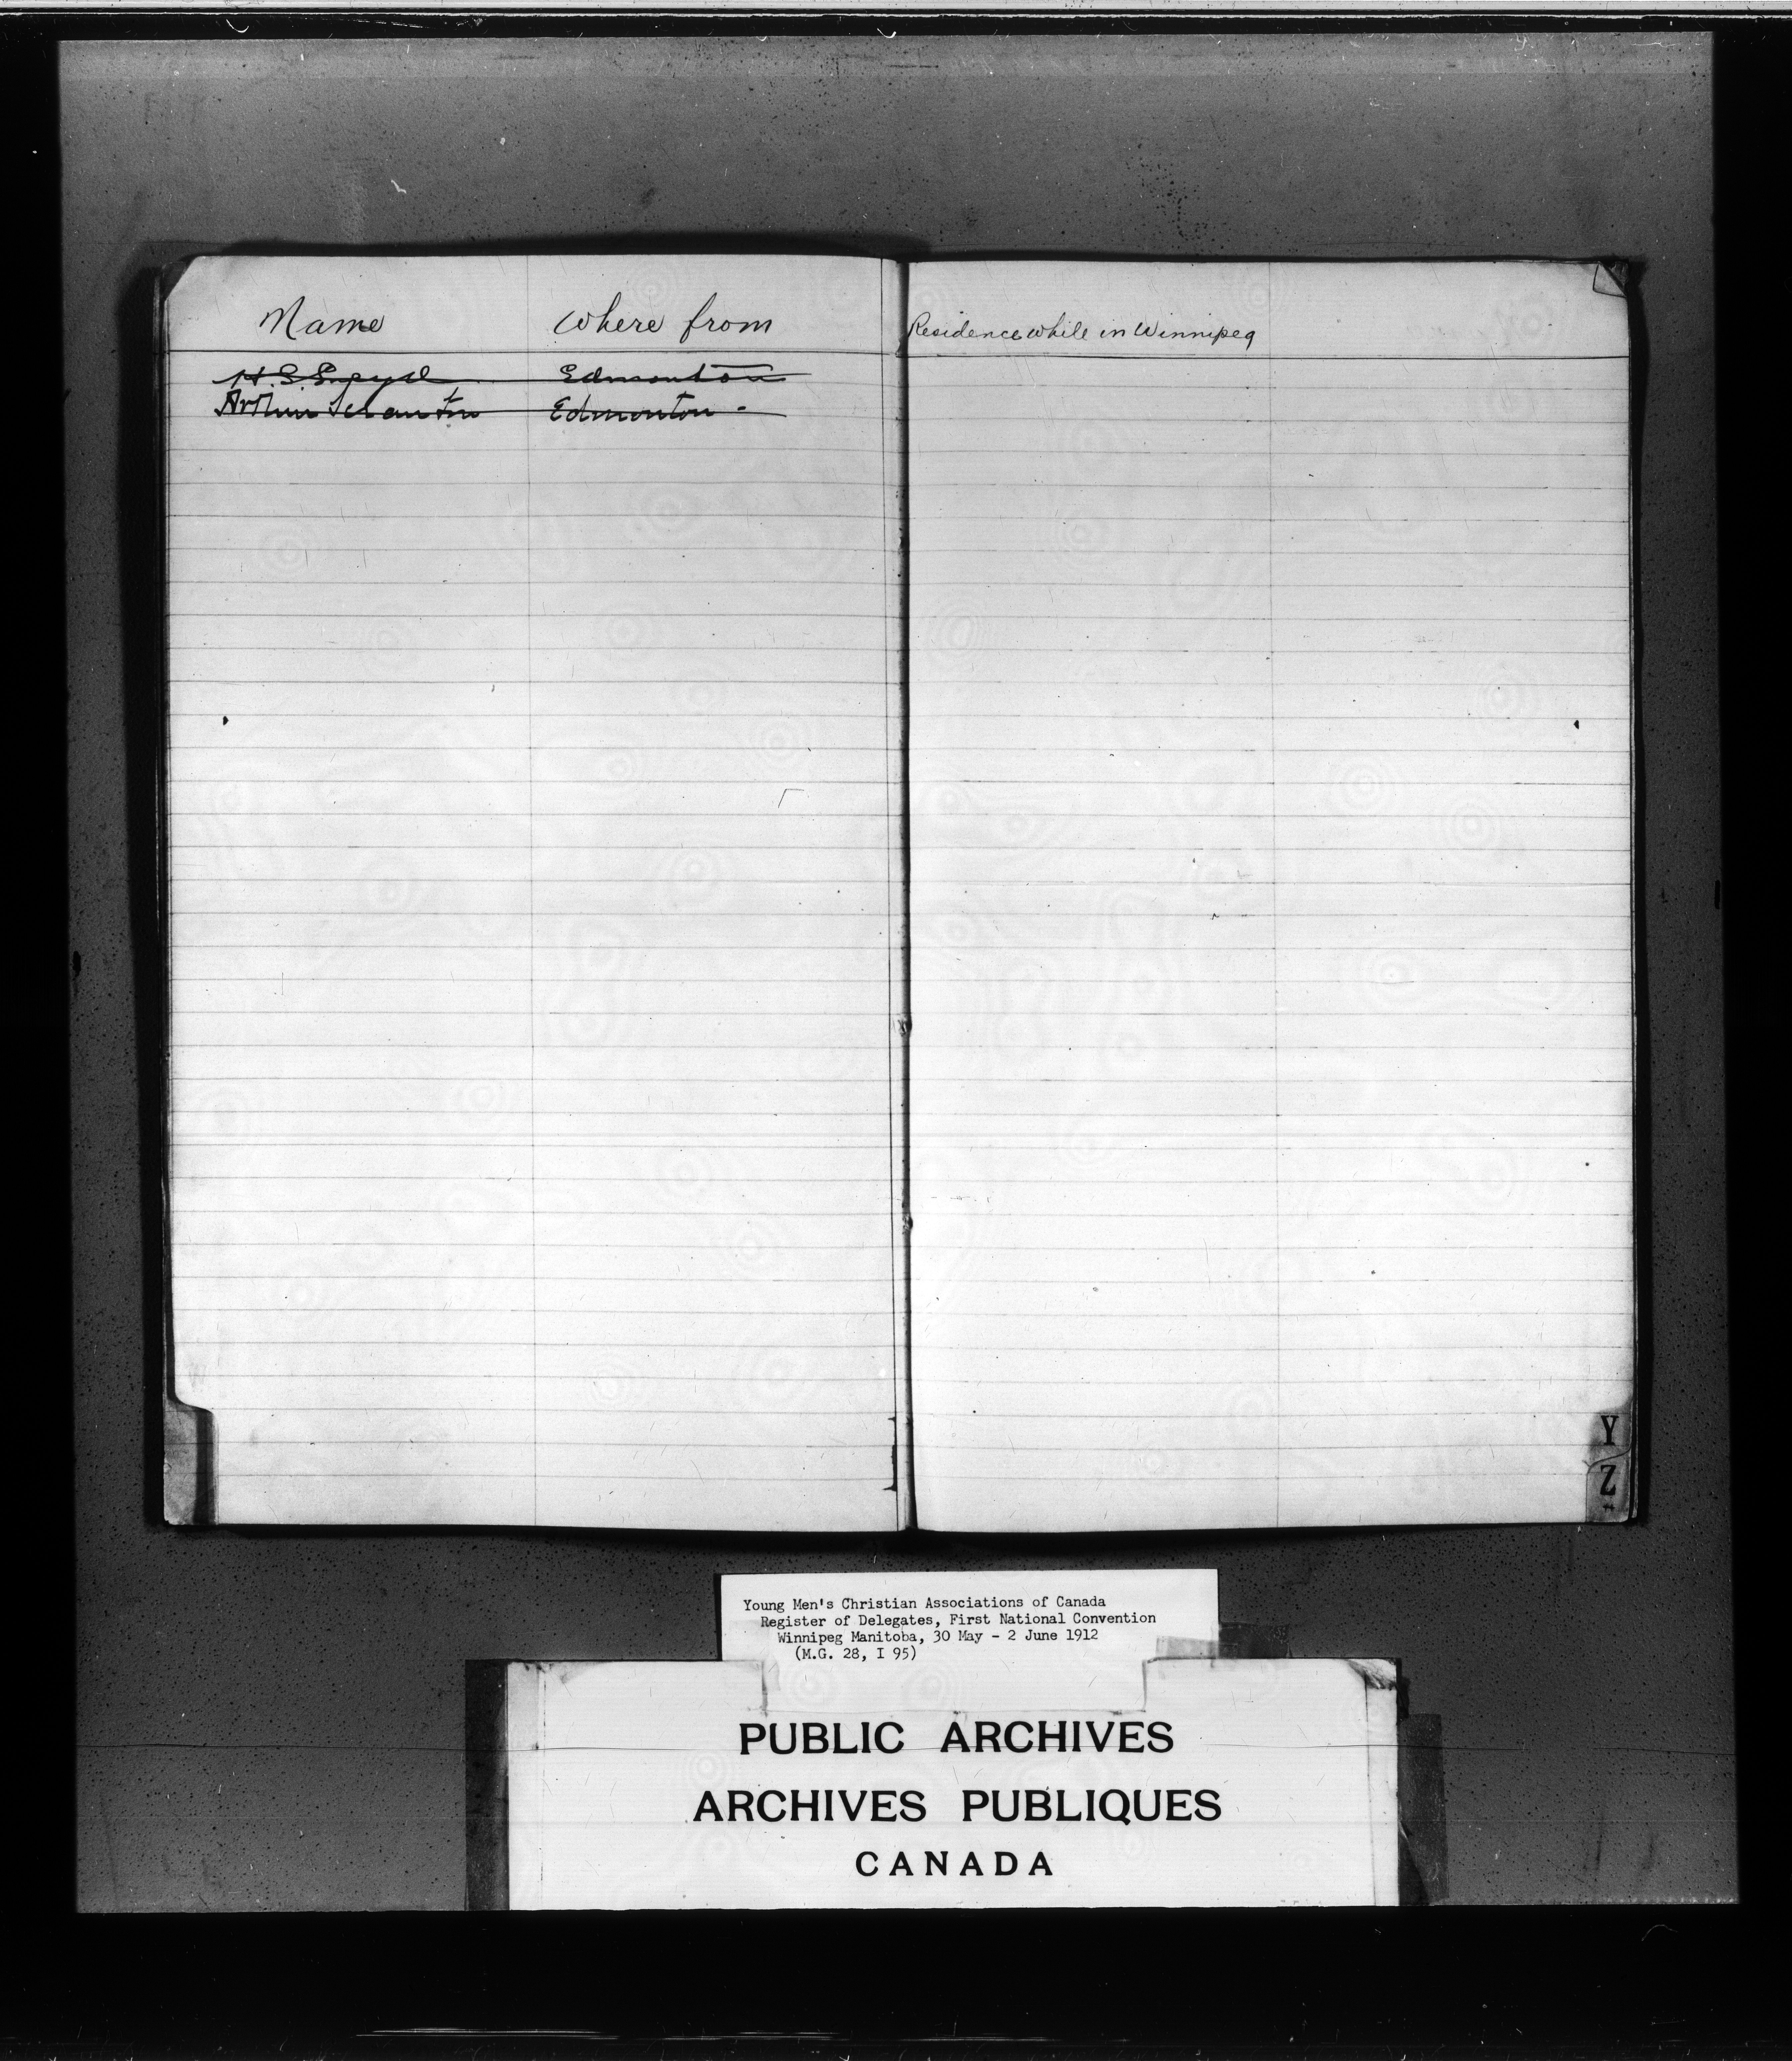 Name Where from Residence while in Winnipeg
H. S. Edmonton
Arthur Edmonton -
Y
Z
Young Men's Christian Associations of Canada
Register of Delegates, First National Convention
Winnipeg Manitoba, 30 May - 2 June 1912
(M.G. 28, I 95)
PUBLIC ARCHIVES
ARCHIVES PUBLIQUES
CANADA